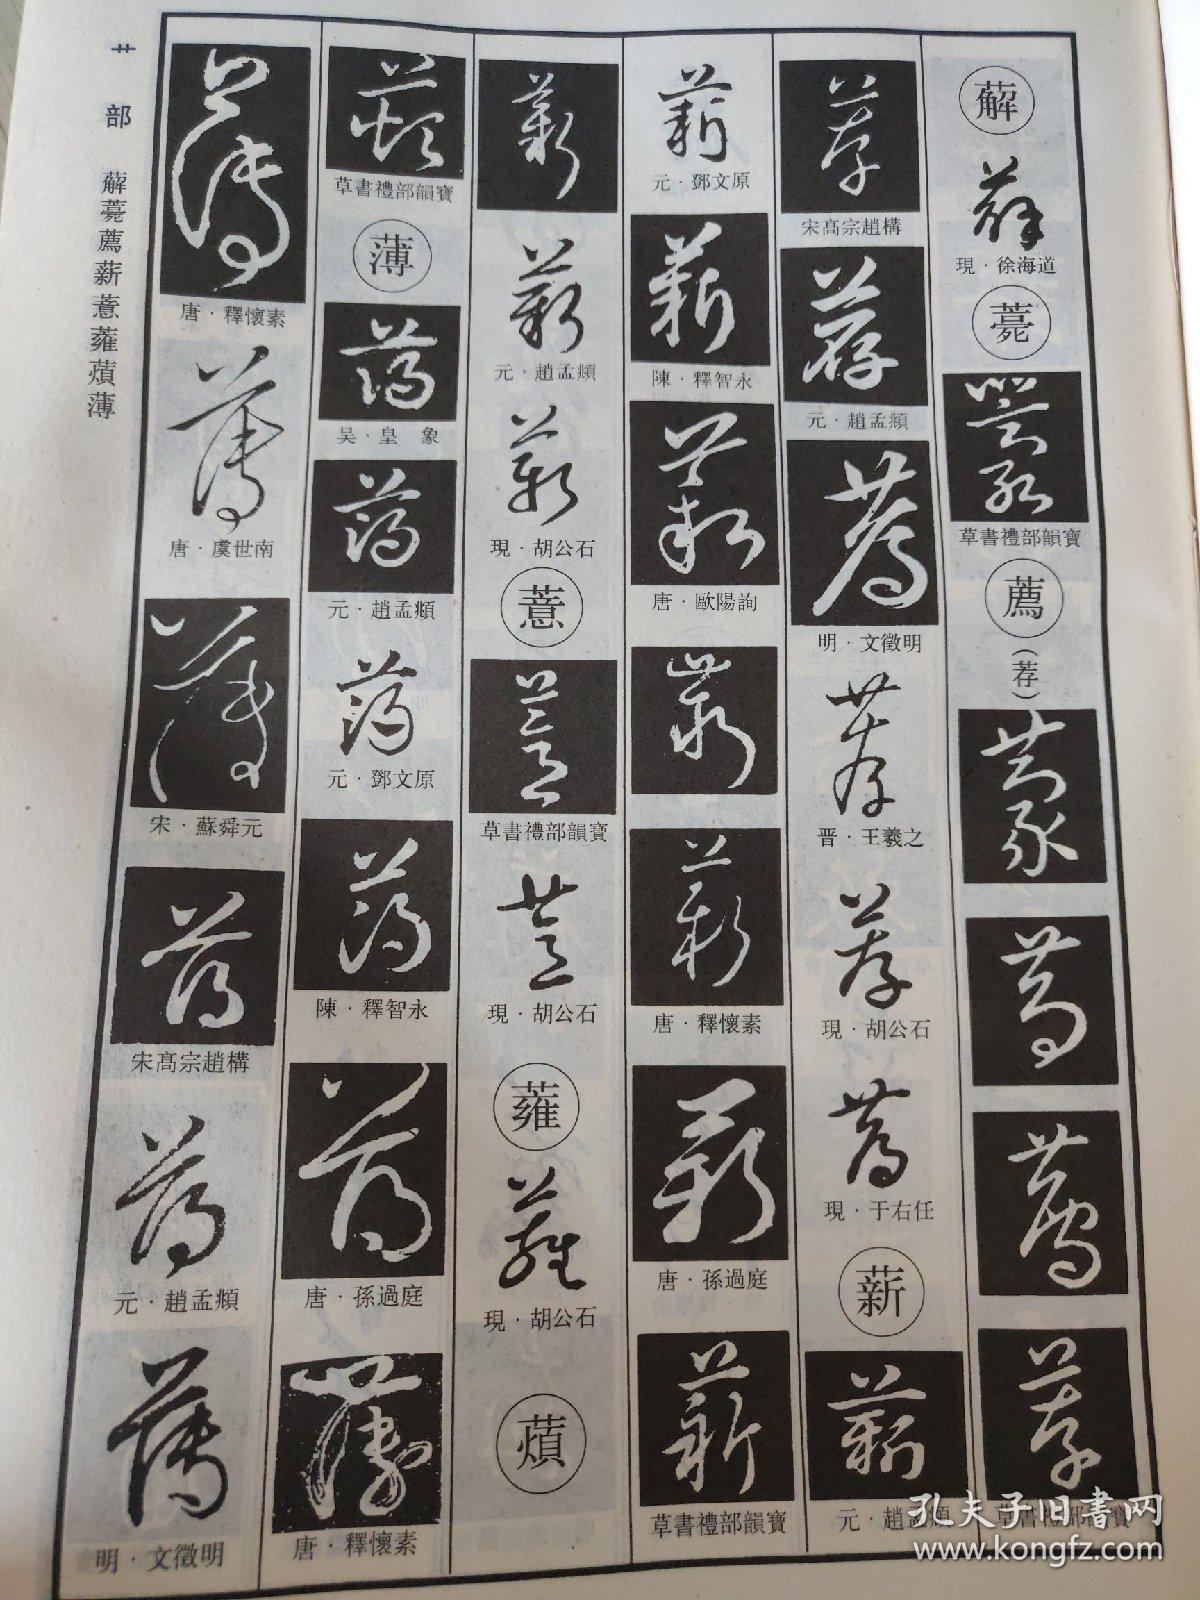 艹部 薢薨薦薪薏蕹蕦薄
薢
現·徐海道
薨
草書禮部韻寶
薦
(荐)
草書禮部韻寶
宋高宗趙構
元·趙孟頫
明·文徵明
晋·王羲之
現·胡公石
現·于右任
薪
元·趙孟頫
元·鄧文原
陳·釋智永
唐·歐陽詢
唐·釋懷素
唐·孫過庭
草書禮部韻寶
元·趙孟頫
現·胡公石
薏
草書禮部韻寶
現·胡公石
蕹
現·胡公石
草書禮部韻寶
薄
吴·皇象
元·趙孟頫
元·鄧文原
陳·釋智永
唐·孫過庭
唐·釋懷素
唐·釋懷素
唐·虞世南
宋·蘇舜元
宋高宗趙構
元·趙孟頫
明·文徵明
孔夫子旧书网
www.kongfz.com